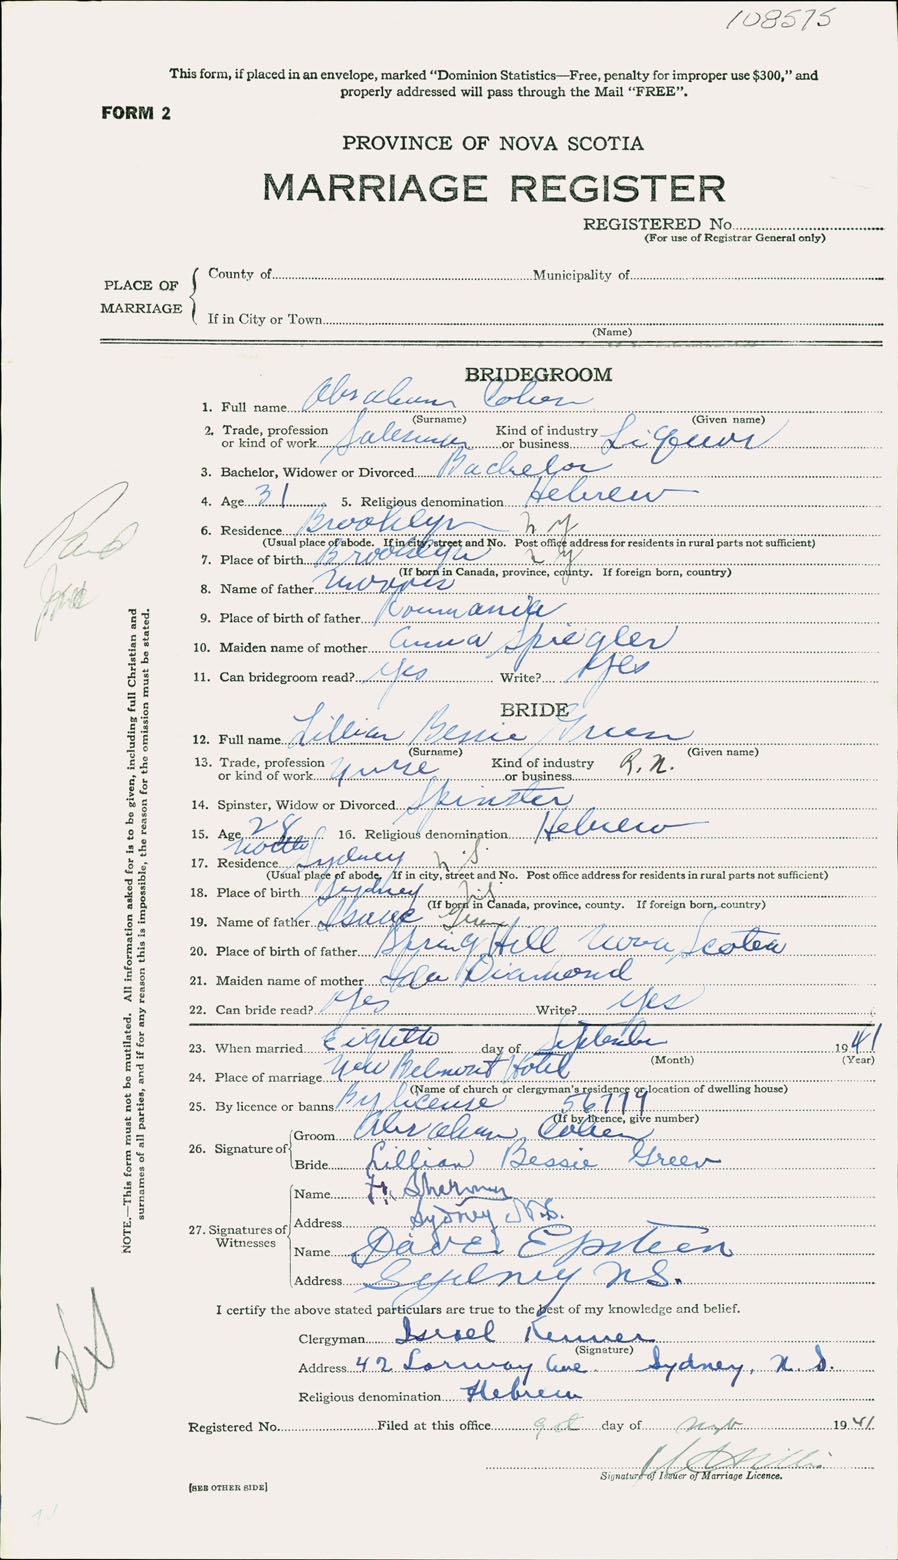 108575
This form, if placed in an envelope, marked "Dominion Statistics—Free, penalty for improper use $300," and
properly addressed will pass through the Mail "FREE".
FORM 2
PROVINCE OF NOVA SCOTIA
MARRIAGE REGISTER
REGISTERED No.
(For use of Registrar General only)
PLACE OF MARRIAGE
County of Municipality of
If in City or Town
(Name)
BRIDEGROOM
1. Full name Abraham Cohen
(Surname) (Given name)
2. Trade, profession or kind of work Salesman Kind of industry or business Liquors
3. Bachelor, Widower or Divorced Bachelor
4. Age 31 5. Religious denomination Hebrew
6. Residence Brooklyn N Y
(Usual place of abode. If in city, street and No. Post office address for residents in rural parts not sufficient)
7. Place of birth Brooklyn N Y
(If born in Canada, province, county. If foreign born, country)
8. Name of father Morris
9. Place of birth of father Roumania
10. Maiden name of mother Anna Spiegler
11. Can bridegroom read? Yes Write? Yes
BRIDE
12. Full name Lillian Bessie Green
(Surname) (Given name)
13. Trade, profession or kind of work Nurse Kind of industry or business R.N.
14. Spinster, Widow or Divorced Spinster
15. Age 28 16. Religious denomination Hebrew
17. Residence North Sydney N.S.
(Usual place of abode. If in city, street and No. Post office address for residents in rural parts not sufficient)
18. Place of birth Sydney N.S.
(If born in Canada, province, county. If foreign born, country)
19. Name of father Isaac Green
20. Place of birth of father Spring Hill Nova Scotia
21. Maiden name of mother Ida Diamond
22. Can bride read? Yes Write? Yes
23. When married Eighth day of September 1941
(Month) (Year)
24. Place of marriage New Belmont Hotel
(Name of church or clergyman's residence or location of dwelling house)
25. By licence or banns By license 56779
(If by licence, give number)
26. Signature of Groom Abraham Cohen
Bride Lillian Bessie Green
27. Signatures of Witnesses
Name H. Sherman
Address Sydney N.S.
Name Dave Epstein
Address Sydney N.S.
I certify the above stated particulars are true to the best of my knowledge and belief.
Clergyman Israel Kenner
(Signature)
Address 42 Lorway Ave. Sydney, N.S.
Religious denomination Hebrew
Registered No. Filed at this office 9th day of 1941
Signature of Issuer of Marriage Licence.
[SEE OTHER SIDE]
NOTE.—This form must not be mutilated. All information asked for is to be given, including full Christian and
surnames of all parties, and if for any reason this is impossible, the reason for the omission must be stated.